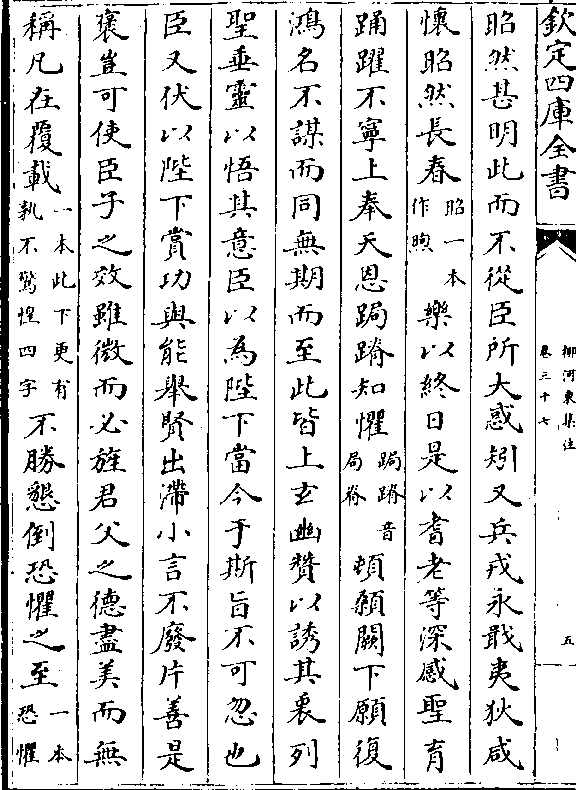 欽定四庫全書
柳河東集注
卷三十七
五
昭然甚明此而不從臣所大惑矧又兵戎永戢夷狄咸
懷昭然長春昭一本作煦樂以終日是以耆老等深感聖育
踊躍不寧上奉天恩跼蹐知懼跼蹐音局脊頓顙闕下願復
鴻名不謀而同無期而至此皆上玄幽贊以誘其衷列
聖垂靈以悟其意臣以為陛下當今于斯旨不可忽也
臣又伏以陛下賞功與能舉賢出滯小言不廢片善是
褒豈可使臣子之效雖微而必旌君父之德盡美而無
稱凡在覆載一本此下更有孰不驚惶四字不勝懇倒恐懼之至一本恐懼